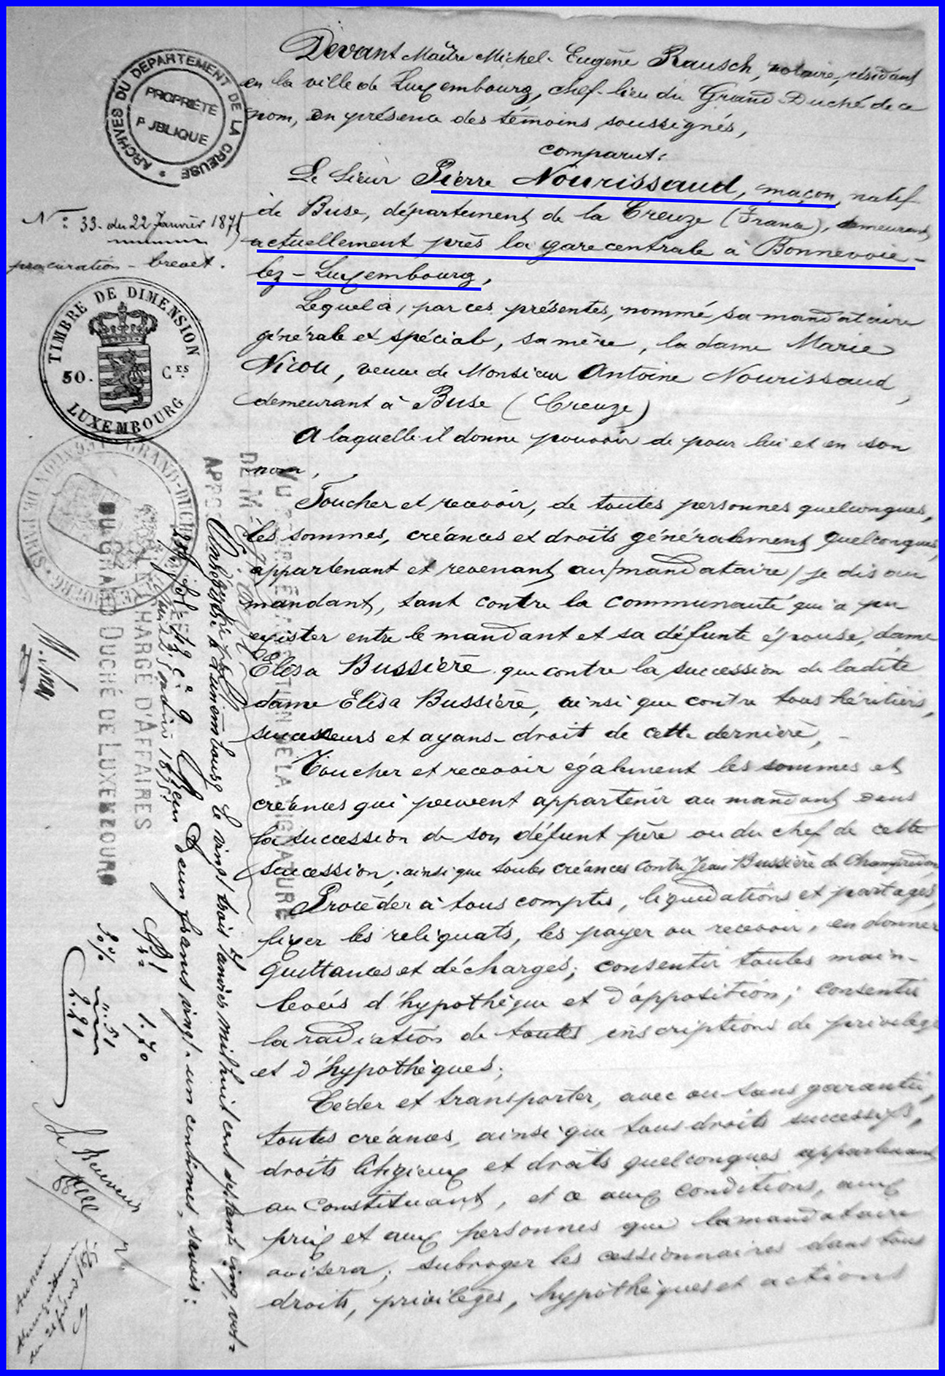 Devant Maître Michel-Eugène Rausch, notaire, résidant
en la ville de Luxembourg, chef-lieu du Grand Duché de ce
nom, en présence des témoins soussignés,
comparut:
Le Sieur Pierre Nourissaud, maçon, natif
de Buse, département de la Creuze (France), demeurant
actuellement près la gare centrale à Bonnevoie-
lez-Luxembourg,
Lequel a, par ces présentes, nommé sa mandataire
générale et spéciale, sa mère, la dame Marie
Nicou, veuve de Monsieur Antoine Nourissaud,
demeurant à Buse (Creuze)
A laquelle il donne pouvoir de pour lui et en son
nom,
Toucher et recevoir, de toutes personnes quelconques,
les sommes, créances et droits généralement quelconques
appartenant et revenant au (mandataire) je dis au
mandant, tant contre la communauté qui a pu
exister entre le mandant et sa défunte épouse, dame
Elisa Bussière que contre la succession de ladite
dame Elisa Bussière, ainsi que contre tous héritiers,
successeurs et ayans-droit de cette dernière,-
Toucher et recevoir également les sommes et
créances qui peuvent appartenir au mandant dans
la succession de son défunt père ou du chef de cette
succession, ainsi que toutes créances contre Jean Bussière de
Procéder à tous comptes, liquidations et partages,
fixer les reliquats, les payer ou recevoir, en donner
quittances et décharges; consentir toutes main-
levées d'hypothèque et d'opposition; consentir
la radiation de toutes inscriptions de privilège
et d'hypothèques;
Céder et transporter, avec ou sans garantie,
toutes créances, ainsi que tous droits successifs,
droits litigieux et droits quelconques appartenant
au constituant, et ce aux conditions, aux
prix et aux personnes que la mandataire
avisera; subroger les cessionnaires dans tous
droits, privilèges, hypothèques et actions
ARCHIVES DU DEPARTEMENT DE LA CREUSE
PROPRIÉTÉ
PUBLIQUE
N° 33. du 22 Janvier 1875
procuration - brevet.
TIMBRE DE DIMENSION
50. CES
LUXEMBOURG
CHARGÉ D'AFFAIRES
DU GRAND DUCHÉ DE LUXEMBOURG
Luxembourg le vingt trois Janvier mil huit cent septante cinq, vol.
francs vingt-un centimes, savoir:
1.70
2.21
Le Receveur